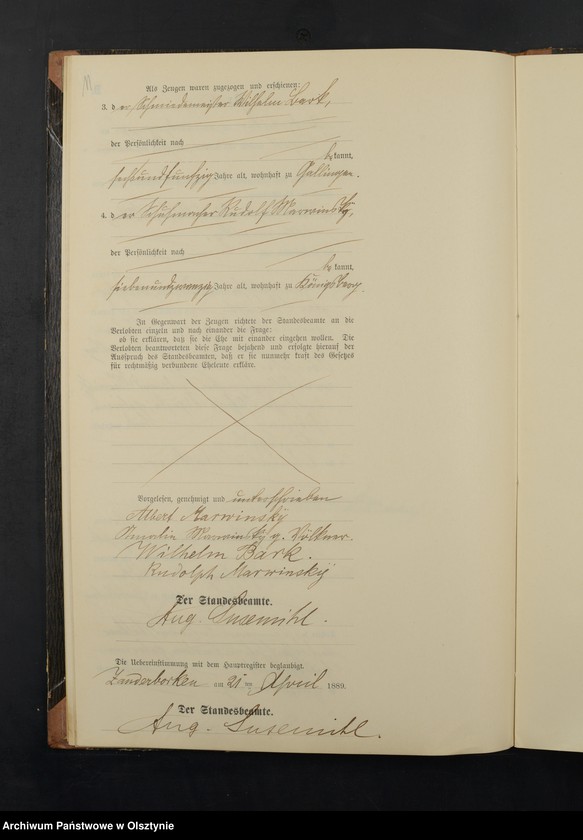 Als Zeugen waren zugezogen und erschienen:
3. der Schmiedemeister Wilhelm Bark,
der Persönlichkeit nach
bekannt,
sechsundfunfzig Jahre alt, wohnhaft zu Gallingen.
4. der Schuhmacher Rudolf Marwinsky,
der Persönlichkeit nach
bekannt,
siebenundzwanzig Jahre alt, wohnhaft zu Königsberg.
In Gegenwart der Zeugen richtete der Standesbeamte an die
Verlobten einzeln und nach einander die Frage:
ob sie erklären, daß sie die Ehe mit einander eingehen wollen. Die
Verlobten beantworteten diese Frage bejahend und erfolgte hierauf der
Ausspruch des Standesbeamten, daß er sie nunmehr kraft des Gesetzes
für rechtmäßig verbundene Eheleute erkläre.
Vorgelesen, genehmigt und unterschrieben
Albert Marwinsky
Amalie Marwinsky g. Völkner.
Wilhelm Bark.
Rudolph Marwinskÿ
Der Standesbeamte.
Aug. Susemihl.
Die Uebereinstimmung mit dem Hauptregister beglaubigt.
Zanderborken am 25ten April 1889.
Der Standesbeamte.
Aug. Susemihl.
Archiwum Państwowe w Olsztynie